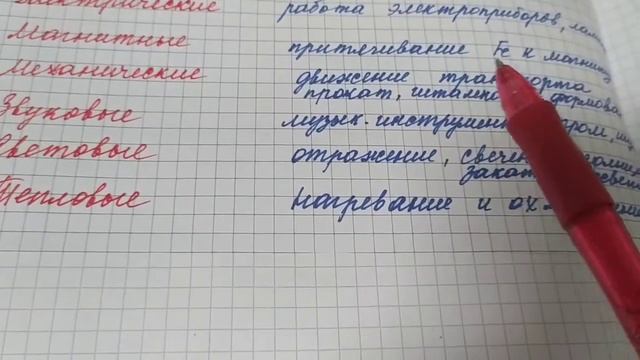 Электрические работа электроприборов,
Магнитные притягивание Fe к магниту
Механические движение транспорта
прокат,
Звуковые музык. инструмен гром,
Световые отражение, свечен
закат
Тепловые нагревание и